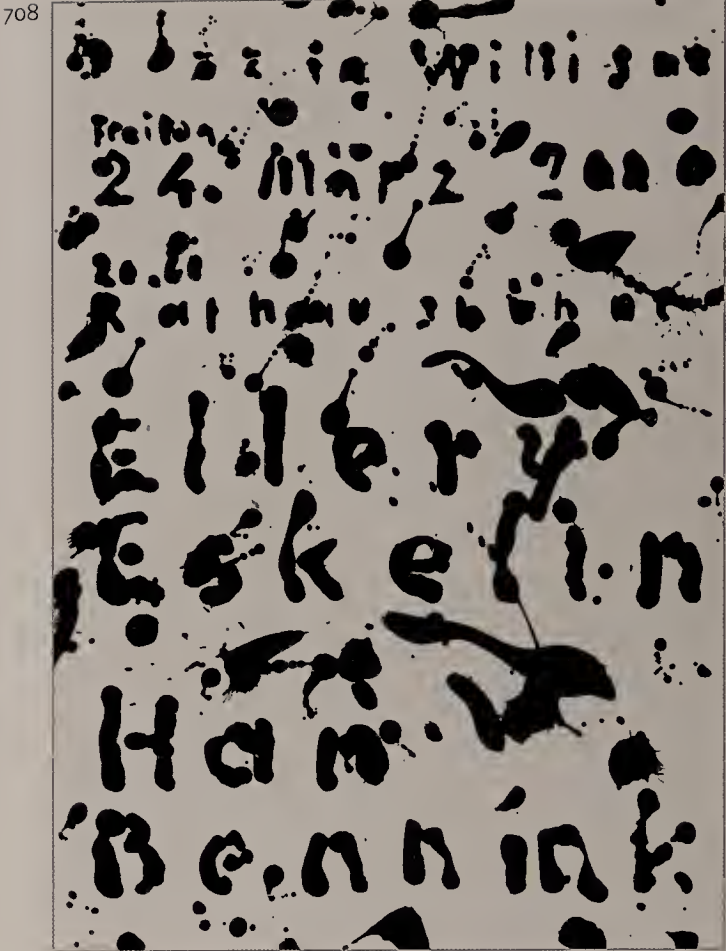 708
Jazz in Willisau
Freitag
24. März 2000
Rathausbühne
Ellery
Eskelin
Han
Bennink